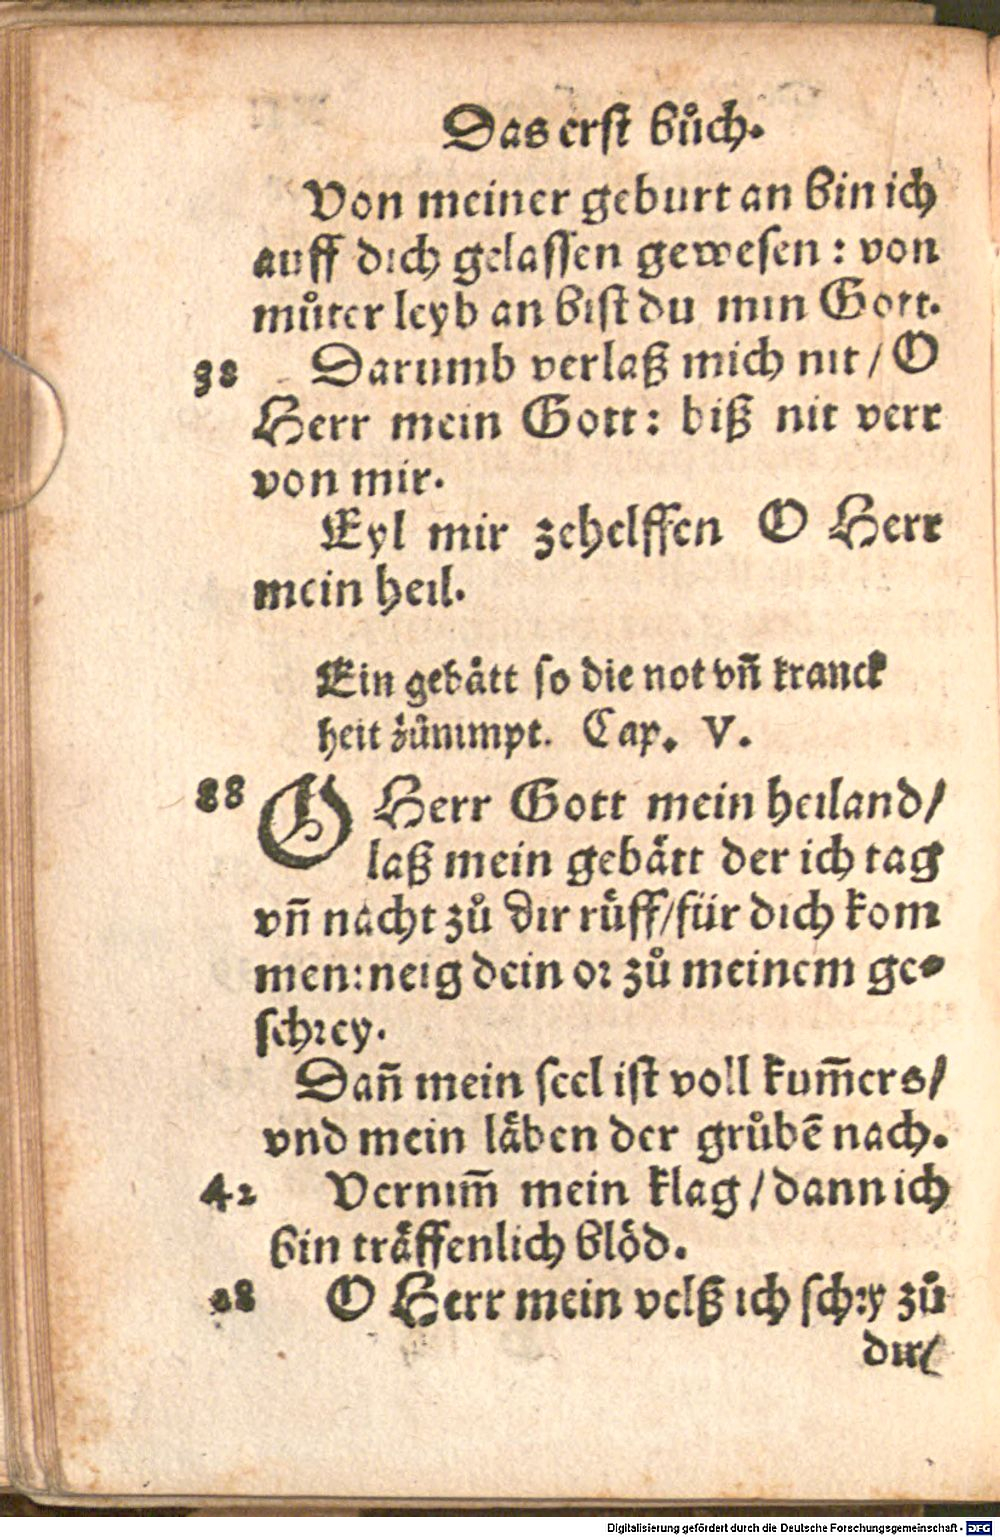 Das erst bůch.
Von meiner geburt an bin ich
auff dich gelassen gewesen : von
můter leyb an bist du min Gott.
38 Darumb verlaß mich nit / O
Herr mein Gott: biß nit verr
von mir.
Eyl mir zehelffen O Herr
mein heil.
Ein gebått so die not vñ kranck
heit zůnimpt. Cap. V.
88 O Herr Gott mein heiland/
laß mein gebätt der ich tag
vñ nacht zů dir rüff/für dich kom
men: neig dein or zů meinem ge-
schrey.
Dañ mein seel ist voll kum̄ers/
vnd mein läben der grůbē nach.
42 Vernim̄ mein klag / dann ich
bin träffenlich blöd.
28 O Herr mein velß ich schry zů
dir/
Digitalisierung gefördert durch die Deutsche Forschungsgemeinschaft - DFG